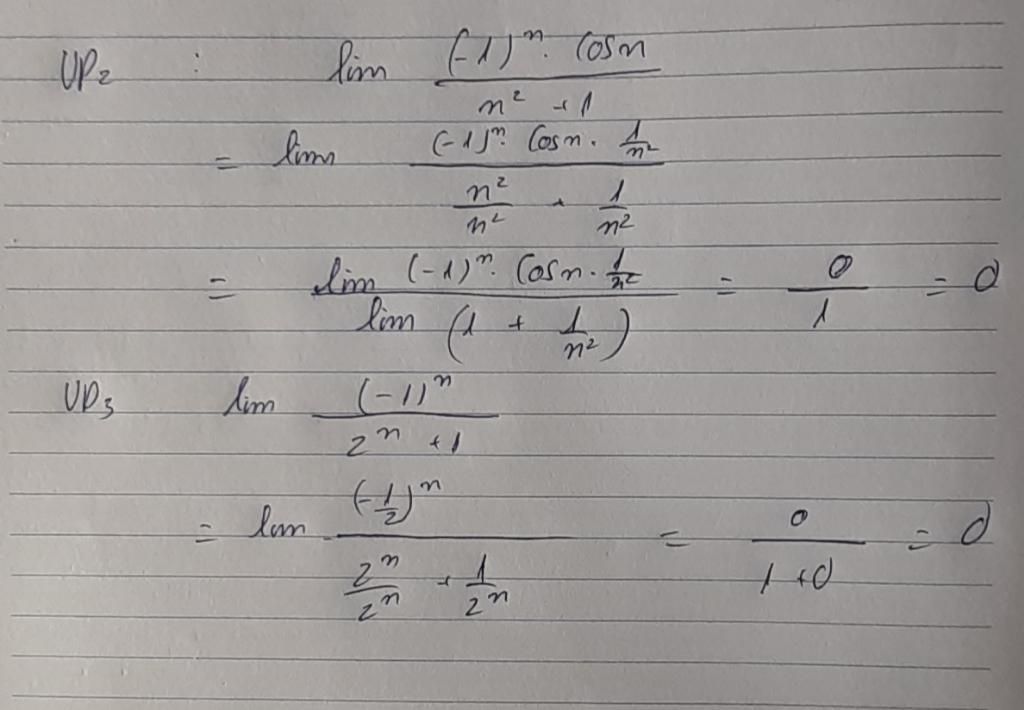 VD2 : lim ((-1)^n . cos n) / (n² + 1)
= lim ((-1)^n . cos n . 1/n²) / (n²/n² + 1/n²)
= (lim (-1)^n . cos n . 1/n²) / (lim (1 + 1/n²)) = 0/1 = 0
VD3 lim (-1)^n / (2^n + 1)
= lim (-1/2)^n / (2^n/2^n + 1/2^n) = 0/(1+0) = 0